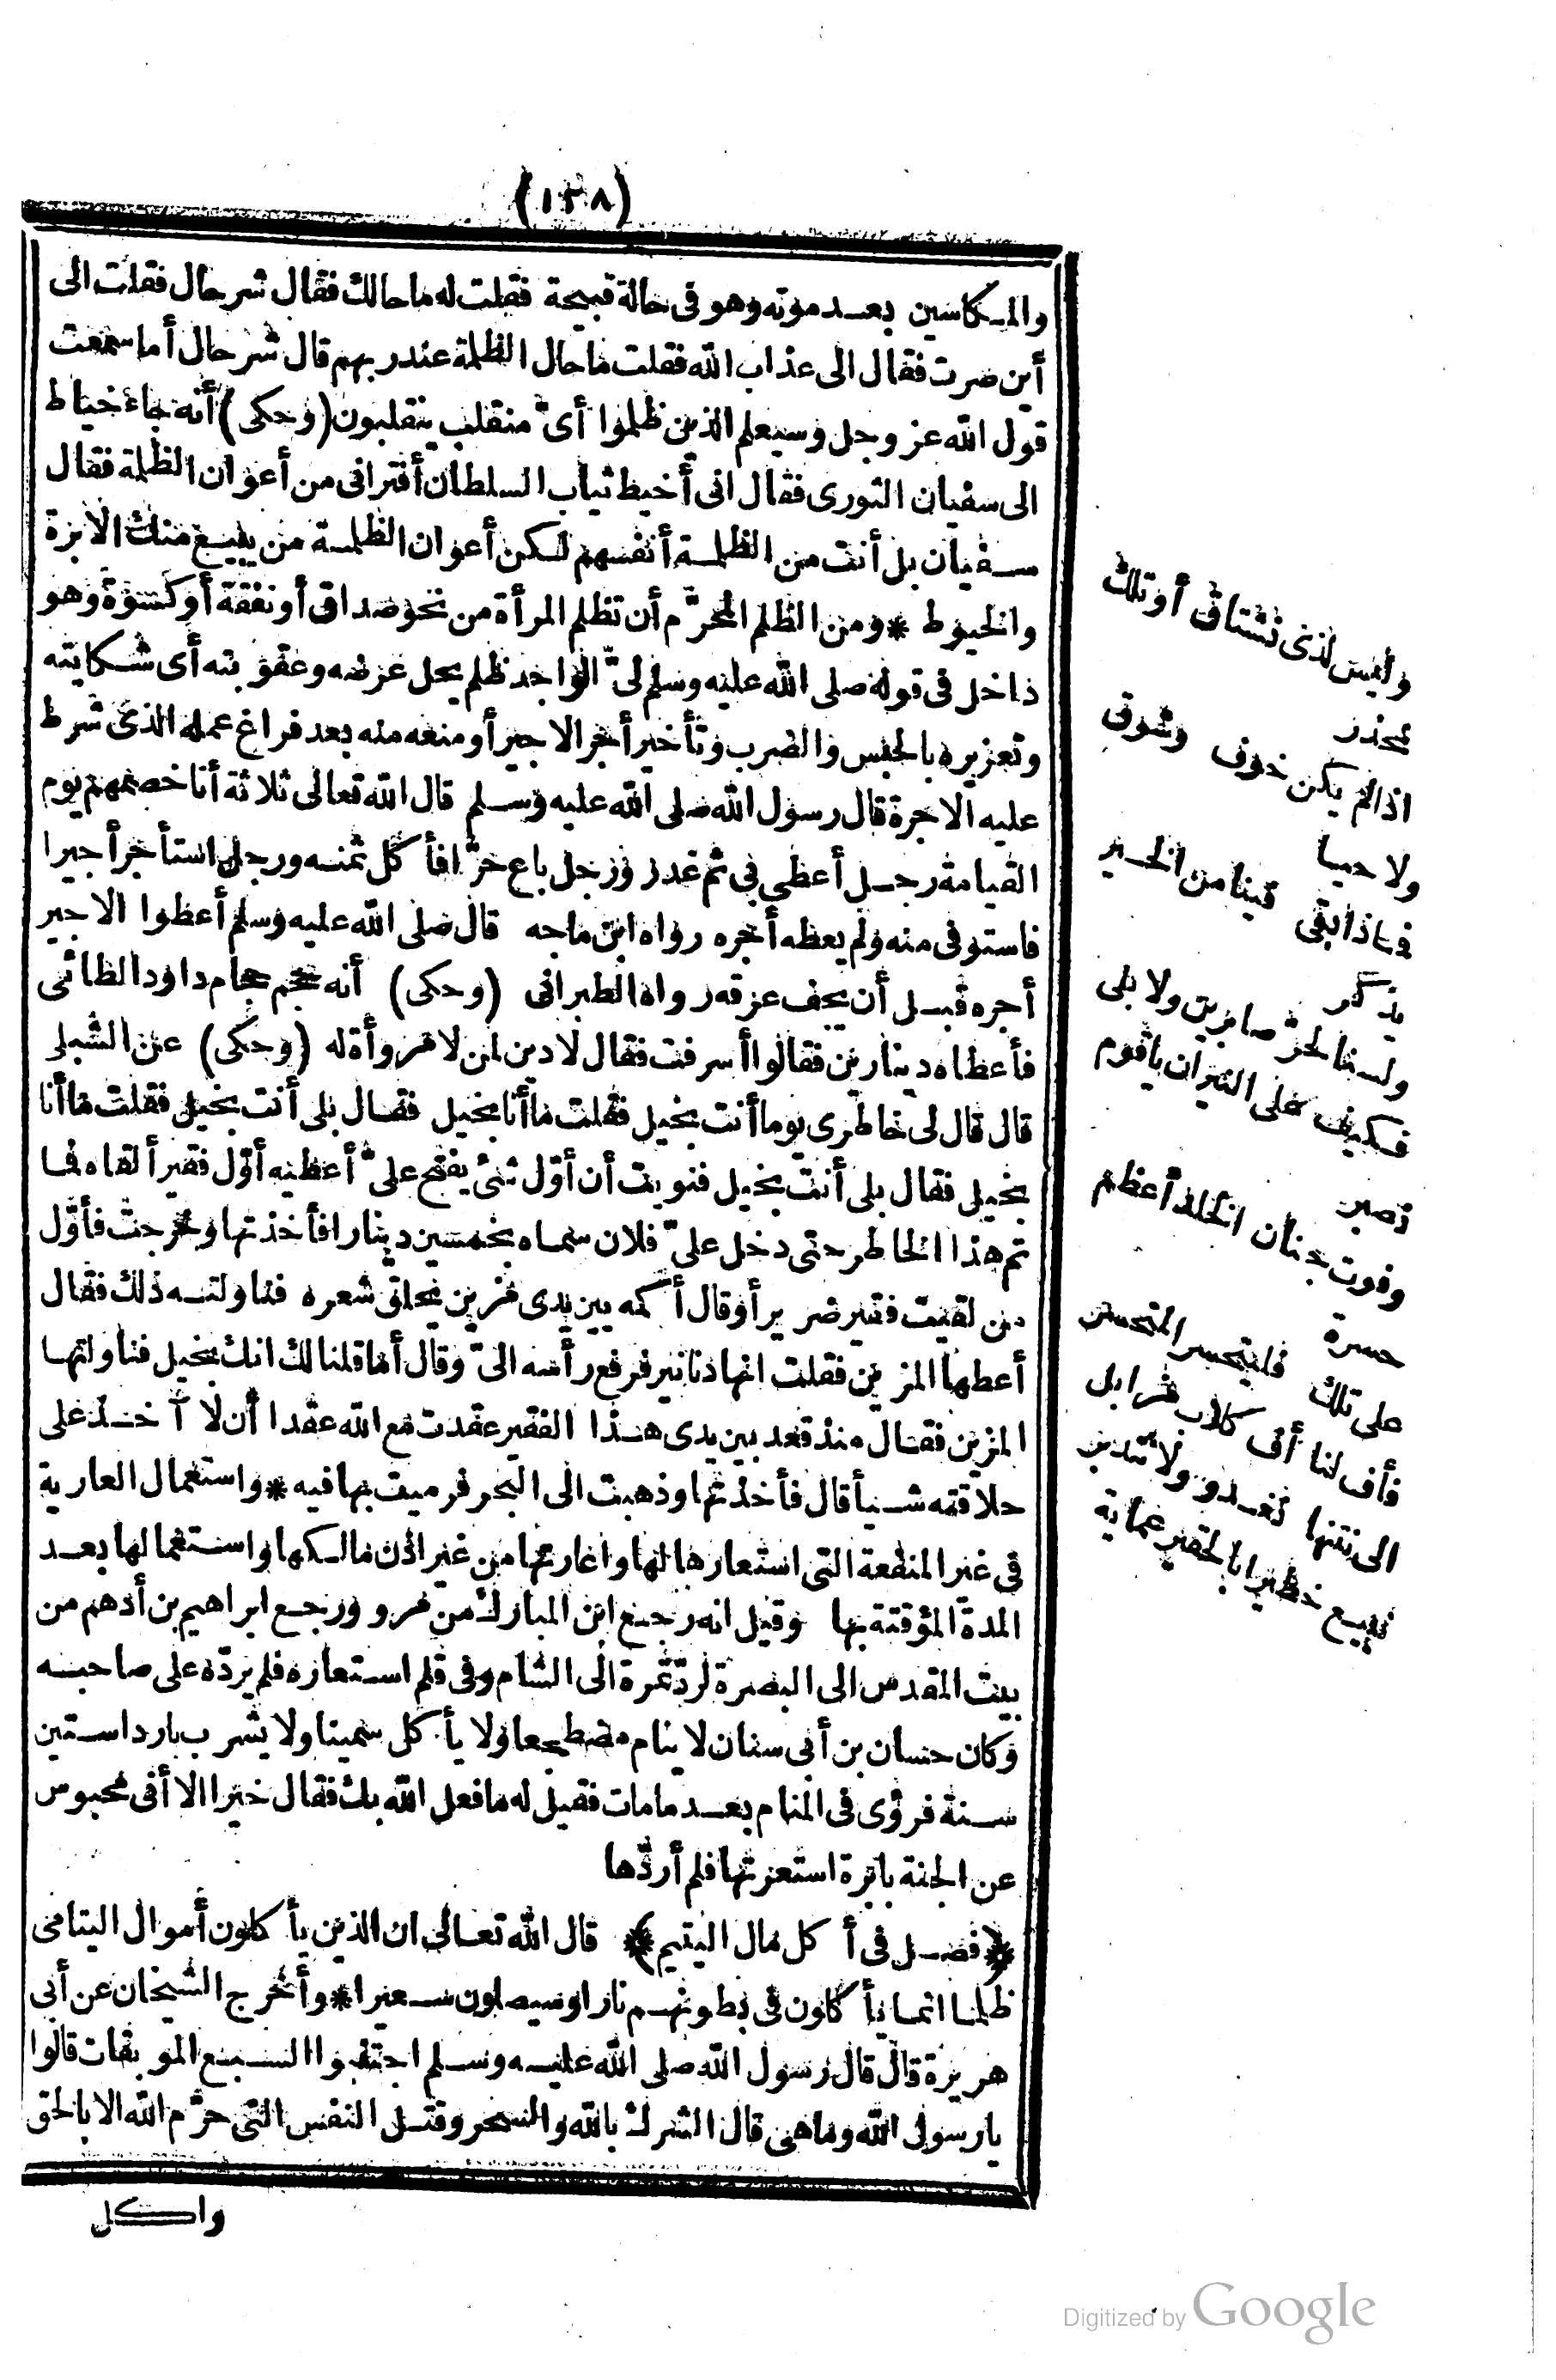 (١٣٨)
والمكاسين بعد موته وهو فى حالة قبيحة فقلت له ما حالك فقال شر حال فقلت الى
أين صرت فقال الى عذاب الله فقلت ما حال الظلمة عند ربهم قال شر حال أما سمعت
قول الله عز وجل وسيعلم الذين ظلموا أىّ منقلب ينقلبون (وحكى) أنه جاء خياط
الى سفيان الثورى فقال انى أخيط ثياب السلطان أفترانى من أعوان الظلمة فقال
سفيان بل أنت من الظلمة أنفسهم لكن أعوان الظلمة من يبيع منك الابرة
والخيوط * ومن الظلم المحرّم أن تظلم المرأة من نحو صداق أو نفقة أو كسوة وهو
داخل فى قوله صلى الله عليه وسلم لىّ الواجد ظلم يحل عرضه وعقوبته أى شكايته
وتعزيره بالحبس والضرب وتأخير أجر الاجير أو منعه منه بعد فراغ عمله الذى شرط
عليه الاجرة قال رسول الله صلى الله عليه وسلم قال الله تعالى ثلاثة أنا خصمهم يوم
القيامة رجل أعطى بى ثم غدر ورجل باع حرّا فأكل ثمنه ورجل استأجر أجيرا
فاستوفى منه ولم يعطه أجره رواه ابن ماجه قال صلى الله عليه وسلم أعطوا الاجير
أجره قبل أن يجف عرقه رواه الطبرانى (وحكى) أنه حجم حجام داود الطائى
فأعطاه دينارين فقالوا أسرفت فقال لا دين لمن لا مروأة له (وحكى) عن الشبلى
قال قال لى خاطرى يوما أنت بخيل فقلت ما أنا بخيل فقال بلى أنت بخيل فقلت ما أنا
بخيل فقال بلى أنت بخيل فنويت أن أوّل شئ يفتح علىّ أعطيه أوّل فقير ألقاه فما
تم هذا الخاطر حتى دخل علىّ فلان سماه بخمسين دينارا فأخذتها وخرجت فأوّل
من لقيت فقير ضرير أوقال أكمه بين يدى مزين يحلق شعره فناولته ذلك فقال
أعطها المزين فقلت انها دنانير فرفع رأسه الىّ وقال أما قلنا لك انك بخيل فناولتها
المزين فقال منذ قعد بين يدى هذا الفقير عقدت مع الله عقدا أن لا آخذ على
حلاقته شيأ قال فأخذتها وذهبت الى البحر فرميت بها فيه * واستعمال العارية
فى غير المنفعة التى استعارها لها واعارتها من غير اذن مالكها واستعمالها بعد
المدة المؤقتة بها وقيل انه رجع ابن المبارك من مرو ورجع ابراهيم بن أدهم من
بيت المقدس الى البصرة لردّ تمرة الى الشام وفى قلم استعاره فلم يردّه على صاحبه
وكان حسان بن أبى سنان لا ينام مضطجعا ولا يأكل سمينا ولا يشرب باردا ستين
سنة فرؤى فى المنام بعد ما مات فقيل له ما فعل الله بك فقال خيرا الا أنى محبوس
عن الجنة بابرة استعرتها فلم أردّها
﴿فصل فى أكل مال اليتيم﴾ قال الله تعالى ان الذين يأكلون أموال اليتامى
ظلما انما يأكلون فى بطونهم نارا وسيصلون سعيرا * وأخرج الشيخان عن أبى
هريرة قال قال رسول الله صلى الله عليه وسلم اجتنبوا السبع الموبقات قالوا
يارسول الله وما هى قال الشرك بالله والسحر وقتل النفس التى حرّم الله الا بالحق
واكل
وليس لذى نشتاق أو تلك
نحذر
اذا لم يكن خوف وشوق
ولا حيا
فماذا بقى فينا من الخير
يذكر
ولسنا لحرّ صابرين ولا بلى
فكيف على النيران ياقوم
نصبر
وفوت جنان الخلد أعظم
حسرة
على تلك فليتحسر المتحسر
فأف لنا أف كلاب مزابل
الى نتنها نغدو ولا نتدبر
نبيع خطيرا بالحقير عماية
Digitized by Google